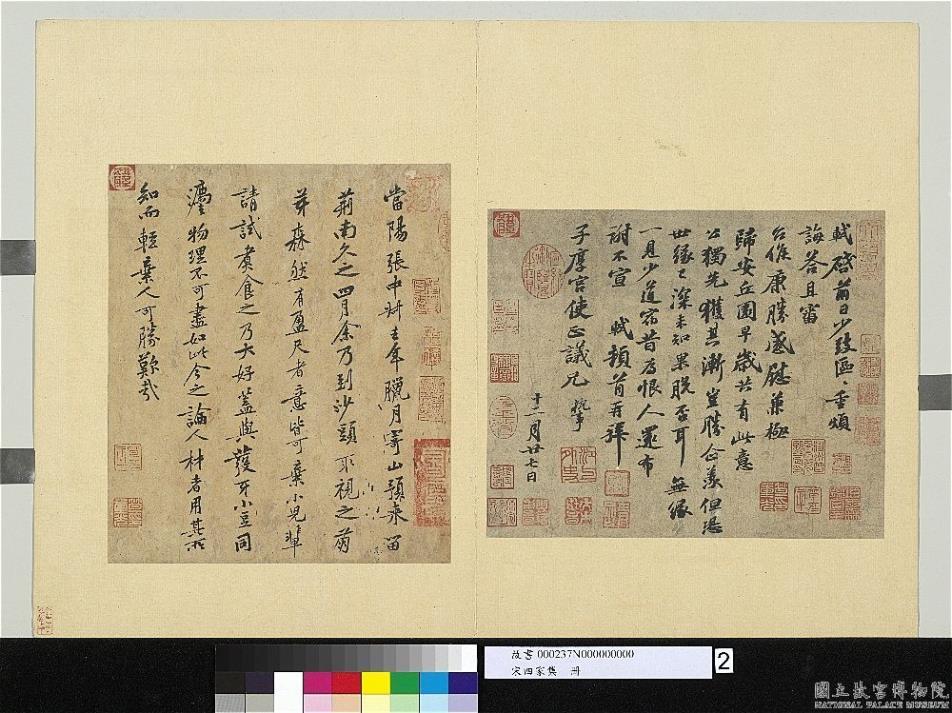 軾啓前日少致區區重煩
誨荅且審
台候康勝感慰兼極
歸安丘園早歲共有此意
公獨先獲其漸豈勝企羨但恐
世緣已深未知果脫否耳無緣
一見少道宿昔爲恨人還布
謝不宣 軾頓首再拜
子厚宮使正議兄執事
十二月廿七日
當陽張中叔去年臘月寄山預來留
荊南久之四月余乃到沙頭取視之萌
芽森然有盈尺者意皆可棄小兒輩
請試煮食之乃大好蓋與發牙小豆同
灋物理不可盡如此今之論人材者用其所
知而輕棄人可勝歎哉
故書 000237N000000000
宋四家集 冊
2
國立故宮博物院
NATIONAL PALACE MUSEUM